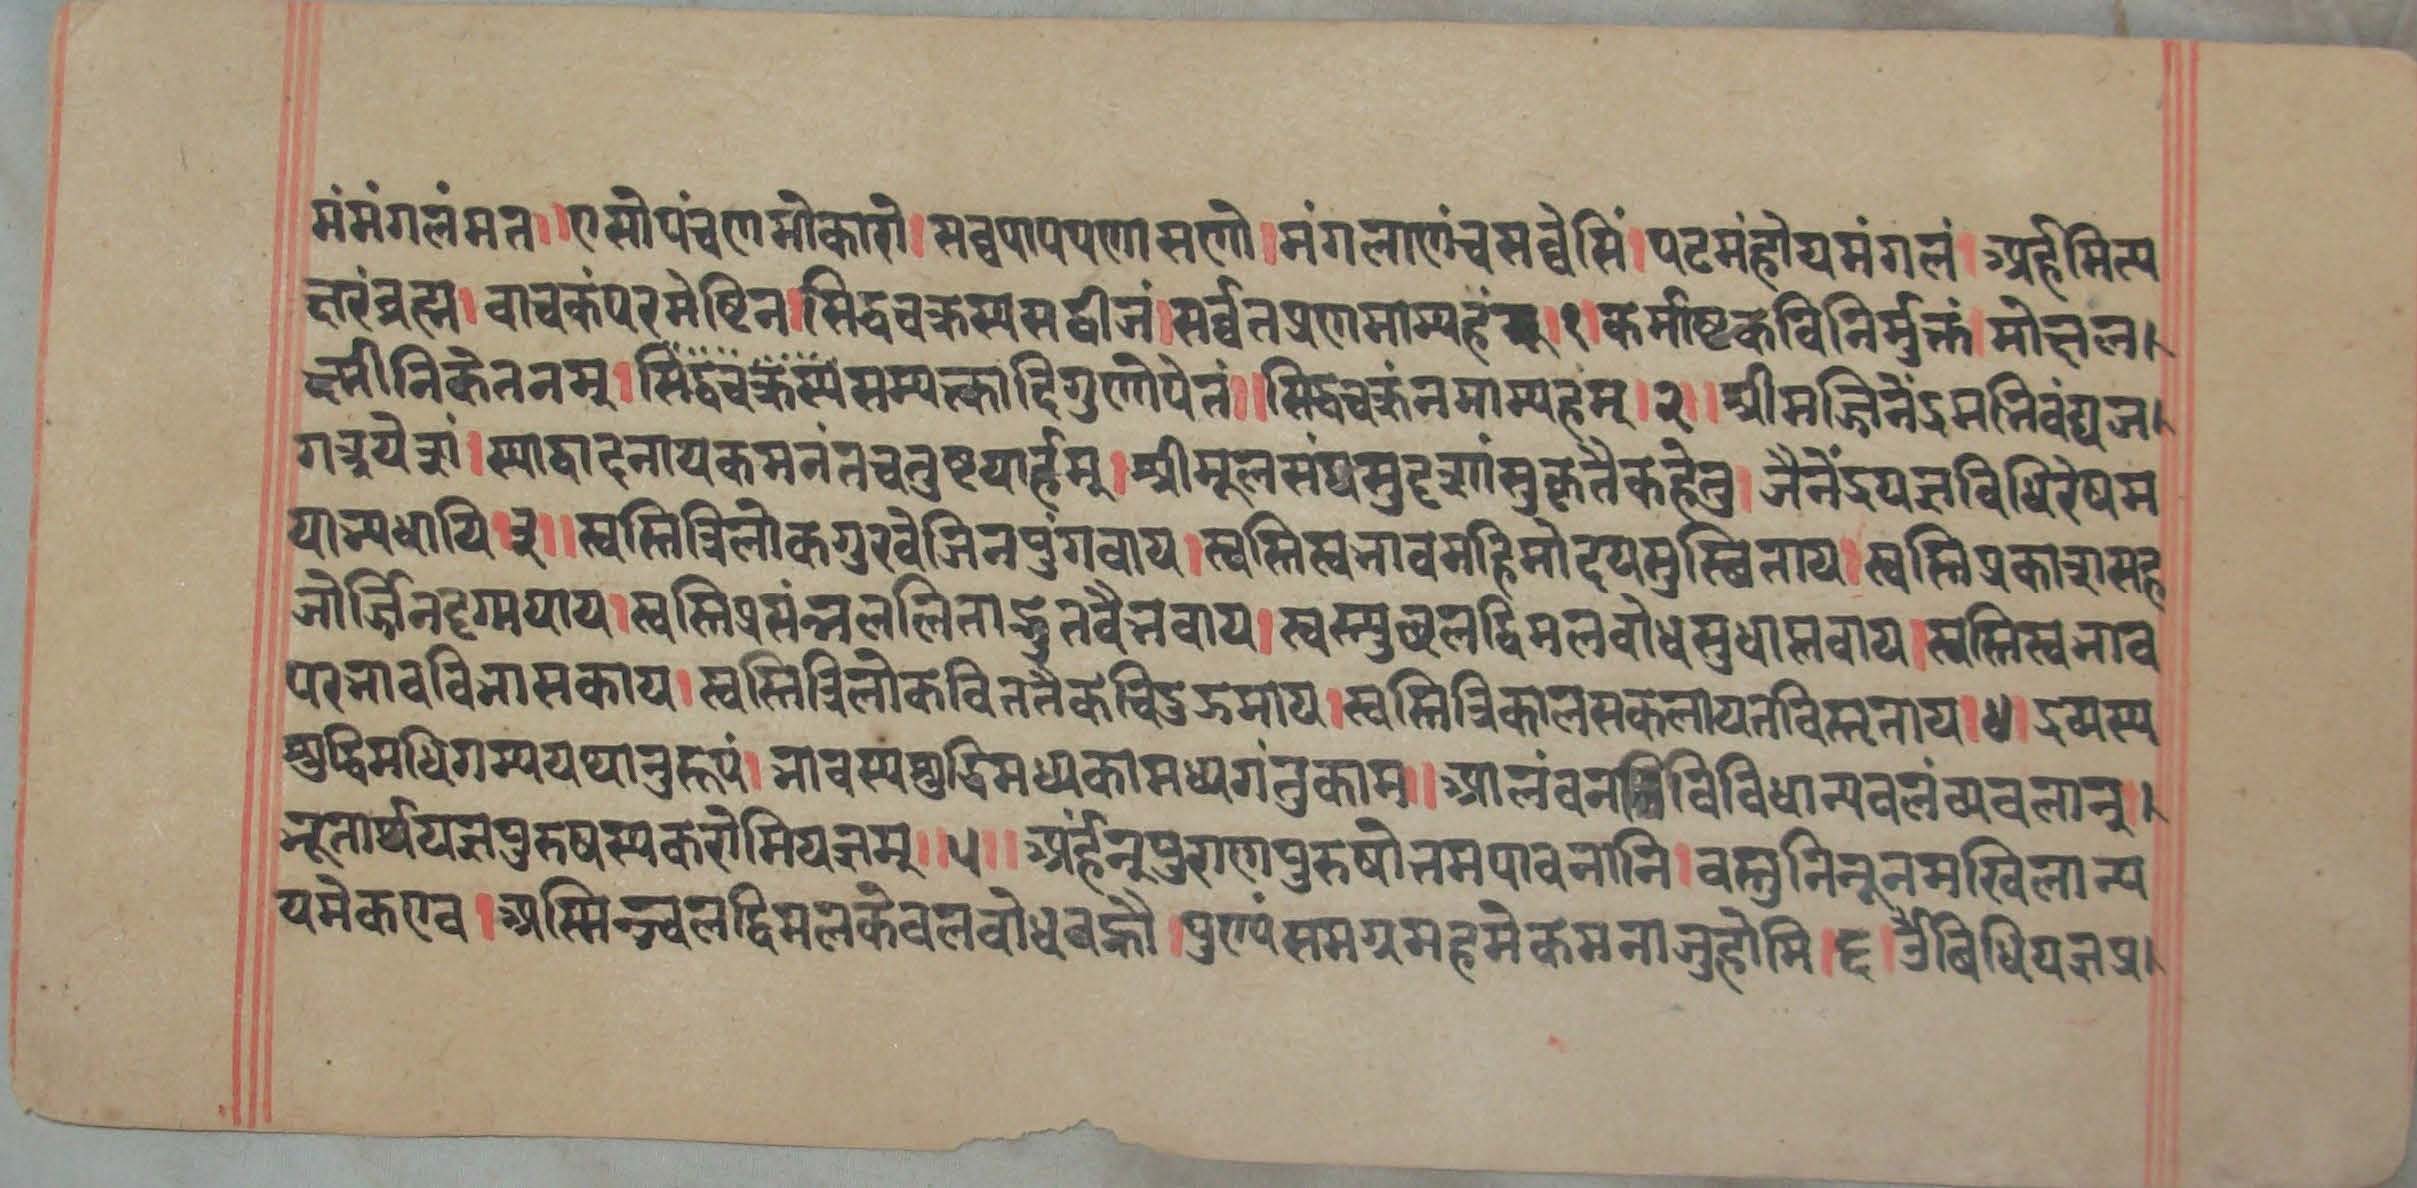 मंमंगलंमत॥एसोपंचणमोकारो।सव्वपापपणासणो।मंगलाणंचसव्वेसिं।पटमंहोयमंगलं।अर्हमित्य
क्षरंब्रह्म।वाचकंपरमेष्टिन।सिद्धचक्रस्यसद्बीजं।सर्व्वतप्रणमाम्यहं।१।कर्माष्टकविनिर्मुक्तं।मोक्षल।
क्ष्मीनिकेतनम्।सिद्धचक्रस्यसम्यत्कादिगुणोपेतं॥सिद्धचक्रंनमाम्यहम्।२॥श्रीमज्जिनेंद्रमभिवंद्यज।
गत्रयेशं।स्याद्वादनायकमनंतचतुष्टयार्हम्।श्रीमूलसंघसुदृशांसुकृतैकहेतु।जैनेंद्रयज्ञविधिरेषम
याभ्यधायि३॥स्वस्तित्रिलोकगुरवेजिनपुंगवाय।स्वस्तिस्वभावमहिमोदयसुस्थिताय।स्वस्तिप्रकाशसह
जोर्ज्जितदृग्मयाय।स्वस्तिप्रसंन्नललिताद्भुतवैभवाय।स्वस्त्युछलद्विमलबोधसुधाप्लवाय।स्वस्तिस्वभाव
परभावविभासकाय।स्वस्तित्रिलोकविततैकचिदुद्गमाय।स्वस्तित्रिकालसकलायतविस्तृताय।४।द्रव्यस्य
शुद्धिमधिगम्ययथानुरूपं।भावस्यशुद्धिमध्यकामध्यगंतुकाम॥आलंवनविविधान्यवलंव्यवलान्।
भूतार्थयज्ञपुरुषस्यकरोमियज्ञम्॥५॥अर्हन्पुराणपुरुषोत्तमपावनानि।वस्तुनिनूनमखिलान्य
यमेकएव।अस्मिन्ज्वलद्विमलकेवलवोधवह्नौ।पुण्यंसमग्रमहमेकमनाजुहोमि।६।बिधियज्ञप्र।